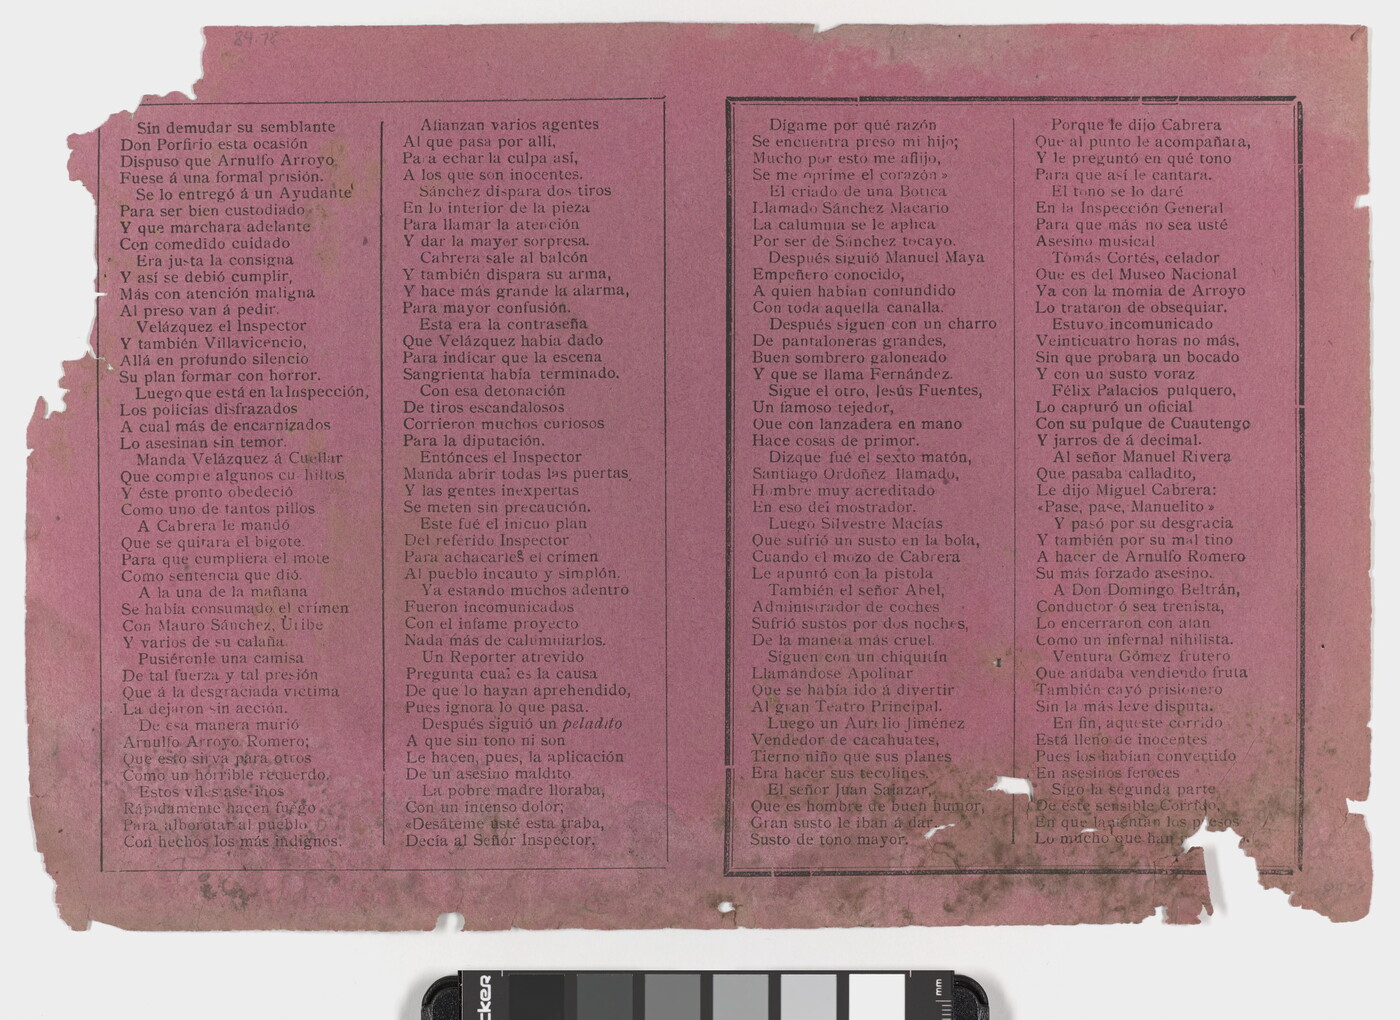 84-78
Sin demudar su semblante
Don Porfirio esta ocasión
Dispuso que Arnulfo Arroyo
Fuese á una formal prisión.
Se lo entregó á un Ayudante
Para ser bien custodiado
Y que marchara adelante
Con comedido cuidado
Era justa la consigna
Y así se debió cumplir,
Más con atención maligna
Al preso van á pedir.
Velázquez el Inspector
Y también Villavicencio,
Allá en profundo silencio
Su plan formar con horror.
Luego que está en la Inspección,
Los policías disfrazados
A cual más de encarnizados
Lo asesinan sin temor.
Manda Velázquez á Cuellar
Que compre algunos cuchillos
Y éste pronto obedeció
Como uno de tantos pillos
A Cabrera le mandó
Que se quitara el bigote.
Para que cumpliera el mote
Como sentencia que dió.
A la una de la mañana
Se había consumado el crimen
Con Mauro Sánchez, Uribe
Y varios de su calaña.
Pusiéronle una camisa
De tal fuerza y tal presión
Que á la desgraciada victima
La dejaron sin acción.
De esa manera murió
Arnulfo Arroyo Romero;
Que esto sirva para otros
Como un horrible recuerdo.
Estos viles asesinos
Rápidamente hacen fuego
Para alborotar al pueblo
Con hechos los más indignos.
Afianzan varios agentes
Al que pasa por allí,
Para echar la culpa así,
A los que son inocentes.
Sánchez dispara dos tiros
En lo interior de la pieza
Para llamar la atención
Y dar la mayor sorpresa.
Cabrera sale al balcón
Y también dispara su arma,
Y hace más grande la alarma,
Para mayor confusión.
Esta era la contraseña
Que Velázquez había dado
Para indicar que la escena
Sangrienta había terminado.
Con esa detonación
De tiros escandalosos
Corrieron muchos curiosos
Para la diputación.
Entónces el Inspector
Manda abrir todas las puertas
Y las gentes inexpertas
Se meten sin precaución.
Este fué el inicuo plan
Del referido Inspector
Para achacarles el crimen
Al pueblo incauto y simplón.
Ya estando muchos adentro
Fueron incomunicados
Con el infame proyecto
Nada más de calumniarlos.
Un Reporter atrevido
Pregunta cual es la causa
De que lo hayan aprehendido,
Pues ignora lo que pasa.
Después siguió un peladito
A que sin tono ni son
Le hacen, pues, la aplicación
De un asesino maldito.
La pobre madre lloraba,
Con un intenso dolor,
«Desáteme usté esta traba,
Decía al Señor Inspector.
Dígame por qué razón
Se encuentra preso mi hijo;
Mucho por esto me aflijo,
Se me oprime el corazón »
El criado de una Botica
Llamado Sánchez Macario
La calumnia se le aplica
Por ser de Sánchez tocayo.
Después siguió Manuel Maya
Empeñero conocido,
A quien habían confundido
Con toda aquella canalla.
Después siguen con un charro
De pantaloneras grandes,
Buen sombrero galoneado
Y que se llama Fernández.
Sigue el otro, Jesús Fuentes,
Un famoso tejedor,
Que con lanzadera en mano
Hace cosas de primor.
Dizque fué el sexto matón,
Santiago Ordoñez llamado,
Hombre muy acreditado
En eso del mostrador.
Luego Silvestre Macías
Que sufrió un susto en la bola,
Cuando el mozo de Cabrera
Le apuntó con la pistola
También el señor Abel,
Administrador de coches
Sufrió sustos por dos noches,
De la manera más cruel.
Siguen con un chiquitín
Llamándose Apolinar
Que se había ido á divertir
Al gran Teatro Principal.
Luego un Aurelio Jiménez
Vendedor de cacahuates,
Tierno niño que sus planes
Era hacer sus tecolines.
El señor Juan Salazar,
Que es hombre de buen humor,
Gran susto le iban á dar
Susto de tono mayor.
Porque le dijo Cabrera
Que al punto le acompañara,
Y le preguntó en qué tono
Para que así le cantara.
El tono se lo daré
En la Inspección General
Para que más no sea usté
Asesino musical
Tomás Cortés, celador
Que es del Museo Nacional
Ya con la momia de Arroyo
Lo trataron de obsequiar.
Estuvo incomunicado
Veinticuatro horas no más,
Sin que probara un bocado
Y con un susto voraz
Félix Palacios pulquero,
Lo capturó un oficial
Con su pulque de Cuautengo
Y jarros de á decimal.
Al señor Manuel Rivera
Que pasaba calladito,
Le dijo Miguel Cabrera:
«Pase, pase, Manuelito »
Y pasó por su desgracia
Y también por su mal tino
A hacer de Arnulfo Romero
Su más forzado asesino.
A Don Domingo Beltrán,
Conductor ó sea trenista,
Lo encerraron con afán
Como un infernal nihilista.
Ventura Gómez frutero
Que andaba vendiendo fruta
También cayó prisionero
Sin la más leve disputa.
En fin, aqueste corrido
Está lleno de inocentes
Pues los habían convertido
En asesinos feroces
Sigo la segunda parte
De éste sensible Corrido,
En que lamentan los presos
Lo mucho que han
mm